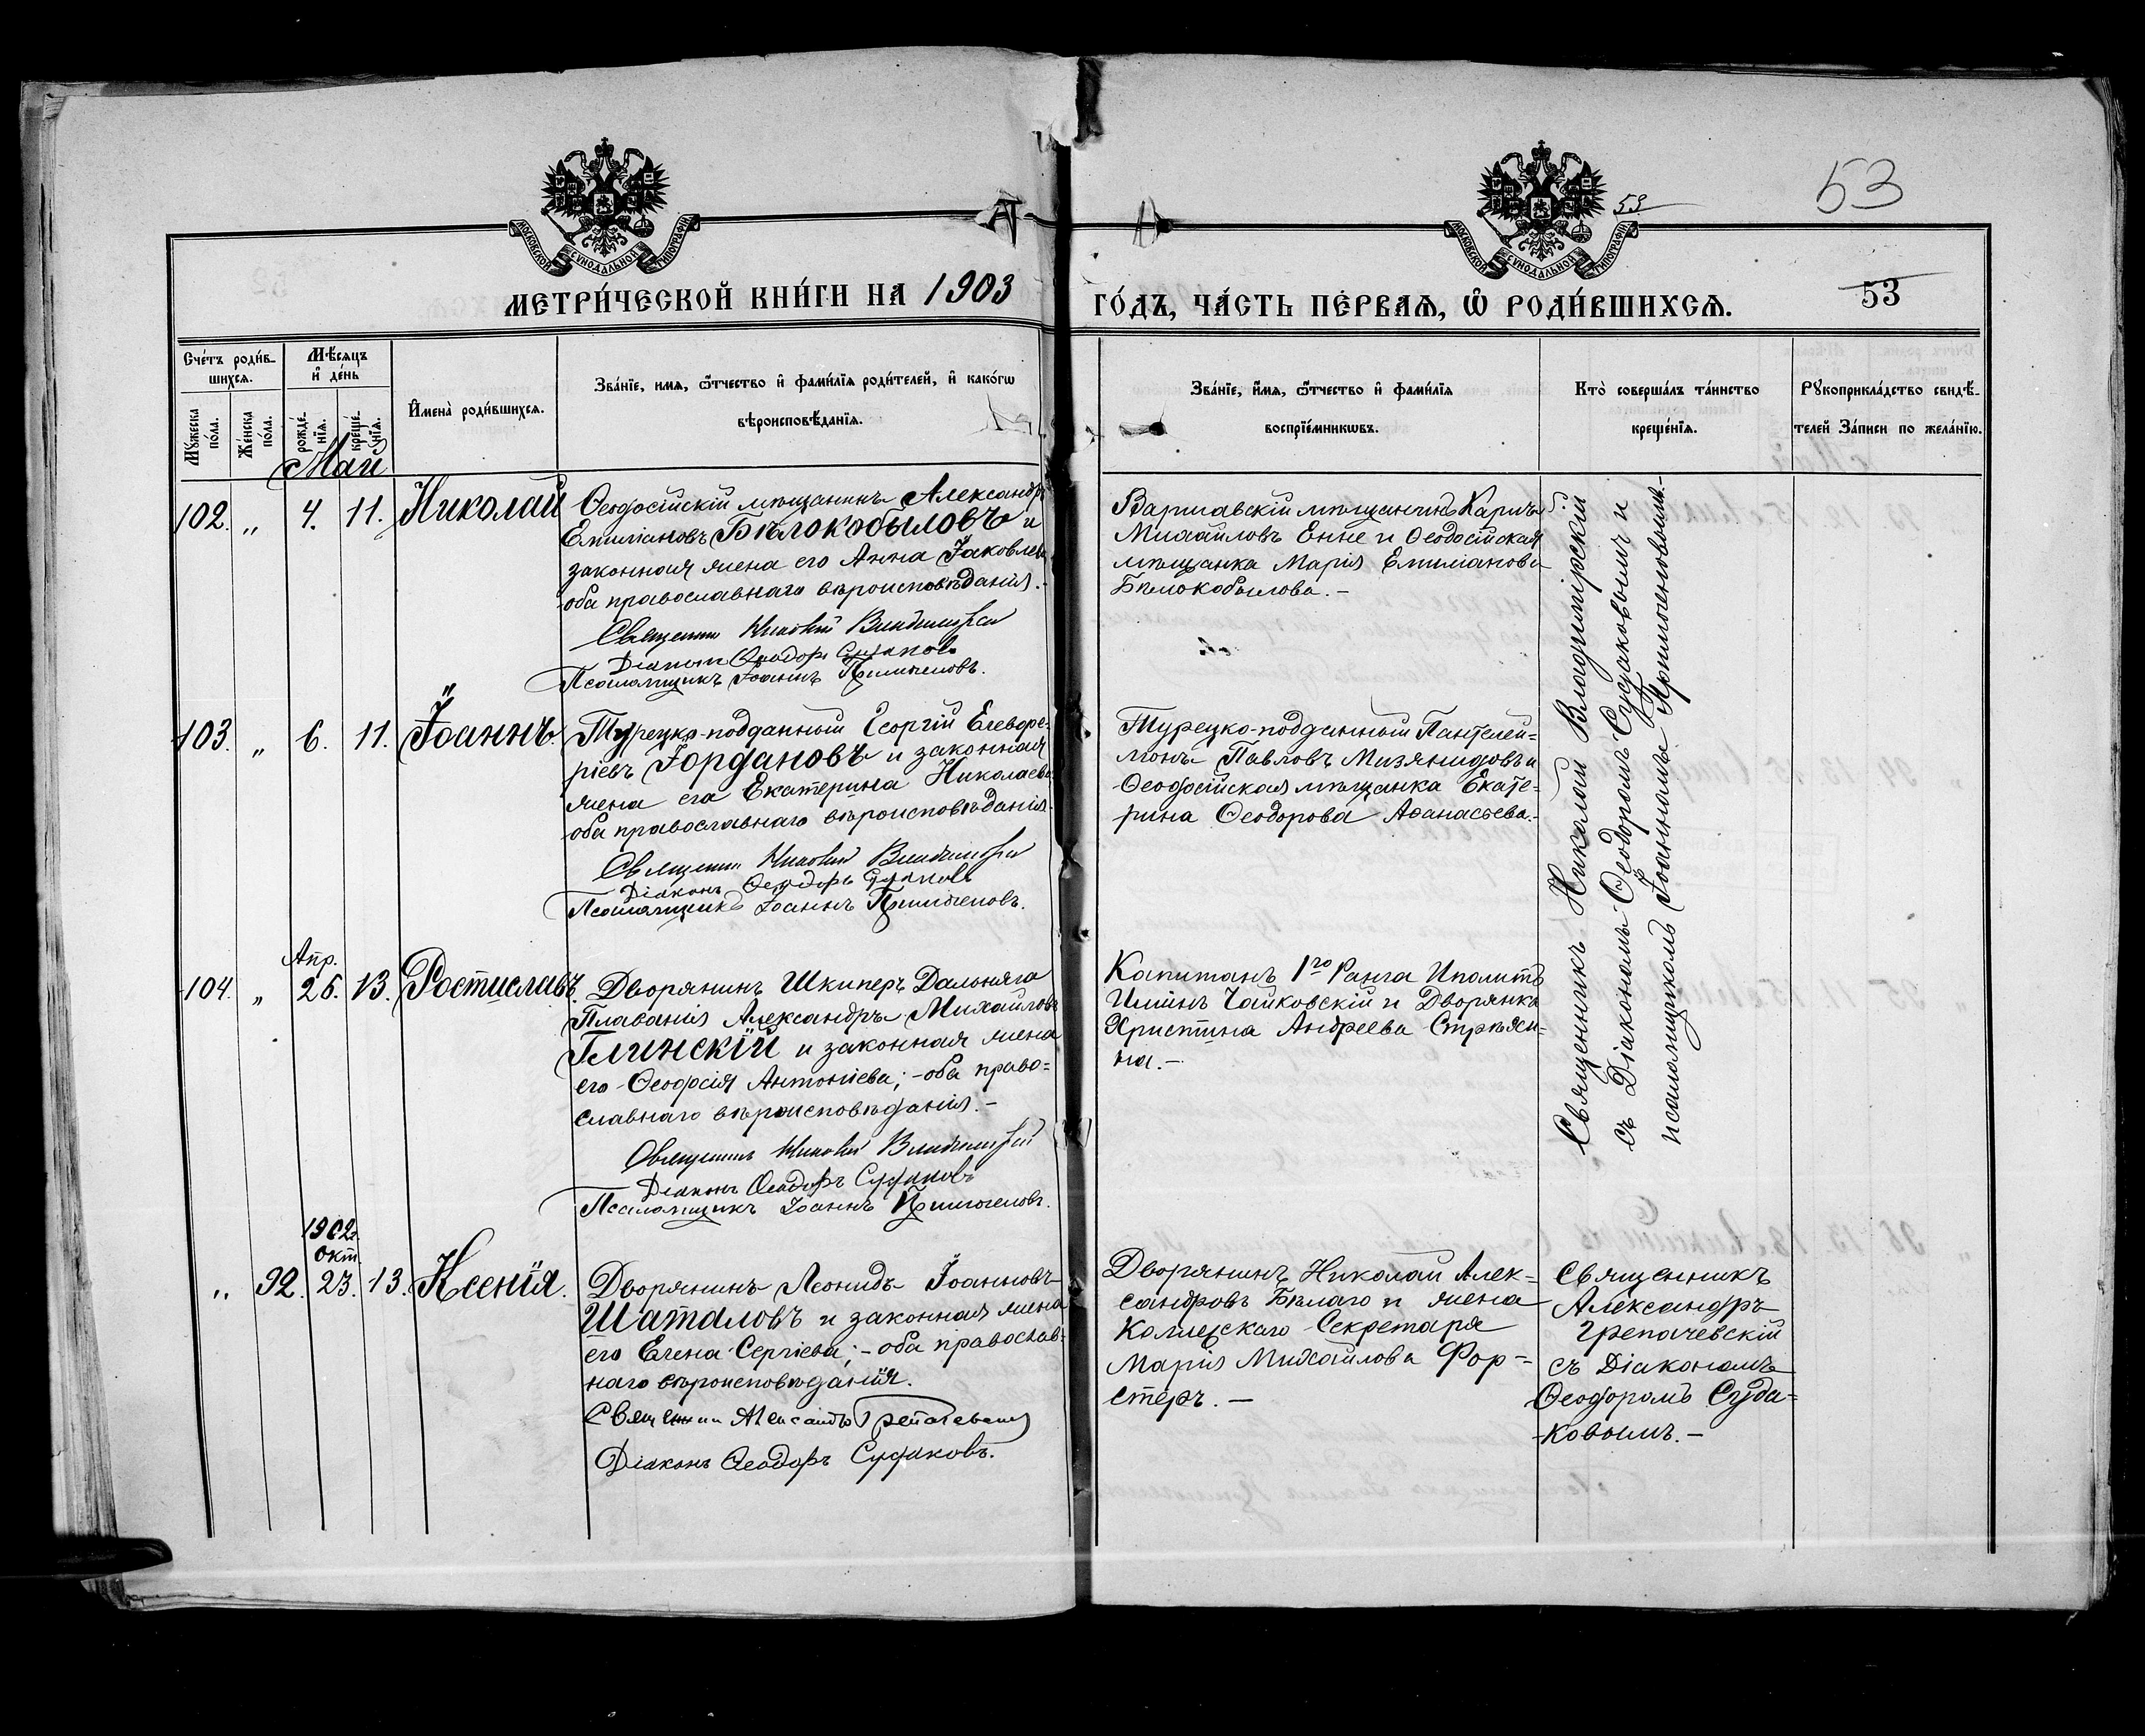 53
53
53
МОСКОВСКОЙ СѴНОДАЛЬНОЙ ТИПОГРАФІИ
МОСКОВСКОЙ СѴНОДАЛЬНОЙ ТИПОГРАФІИ
МЕТРИ́ЧЕСКОЙ КНИ́ГИ НА 1903 ГО́ДЪ, ЧА́СТЬ ПЕ́РВАѦ, Ѡ҆ РОДИ́ВШИХСѦ.
Сче́тъ роди́в-
шихсѧ.
Мꙋжеска по́ла.
Же́нска по́ла.
Мѣ́сѧцъ
и҆ де́нь
рожде́-
нїѧ.
креще́-
нїѧ.
И҆мена̀ роди́вшихсѧ.
Зва́нїе, имѧ, ѻ҆́тчество и҆ фами́лїѧ роди́телей, и҆ како́гѡ
вѣроисповѣ́данїѧ.
Зва́нїе, и҆́мѧ, ѻ҆́тчество и҆ фами́лїѧ
воспрїе́мникѡвъ.
Кто̀ соверша́лъ та́инство
креще́нїѧ.
Рꙋкоприкла́дство свидѣ́-
телей За́писи по жела́нїю.
Май
102. „ 4. 11. Николай
Ѳеодосійскій мѣщанинъ Александръ
Емиліановъ Бѣлокобыловъ и
законная жена его Анна Іаковлева
оба православнаго вѣроисповѣданія.-
Священникъ Николай Владимірскій
Діаконъ Ѳеодоръ Судаковъ
Псаломщикъ Іоаннъ
Варшавскій мѣщанинъ Карпъ
Михайловъ Енне и Ѳеодосійская
мѣщанка Марія Емиліанова
Бѣлокобылова.-
103. „ 6. 11. Іоаннъ.
Турецко-подданный Георгій Елевфе-
ріевъ Іордановъ и законная
жена его Екатерина Николаева
оба православнаго вѣроисповѣданія.
Священникъ Николай Владимірскій
Діаконъ Ѳеодоръ Судаковъ
Псаломщикъ Іоаннъ
Турецко-подданный Пантелей-
монъ Павловъ и
Ѳеодосійская мѣщанка Екате-
рина Ѳеодорова Аѳанасьева.-
Апр.
104. „ 26. 13. Ростиславъ.
Дворянинъ Шкиперъ Дальняго
Плаванія Александръ Михайловъ
Глинскій и законная жена
его Ѳеодосія Антоніева; - оба право-
славнаго вѣроисповѣданія.-
Священникъ Николай Владимірскій
Діаконъ Ѳеодоръ Судаковъ
Псаломщикъ Іоаннъ
Капитанъ 1го Ранга Иполитъ
Ильинъ Чайковскій и Дворянка
Христина Андреева
на.-
Священникъ Николай Владимірскій
съ Діакономъ Ѳеодоромъ Судаковымъ и
псаломщикомъ Іоанномъ
1902г.
Окт.
„ 92. 23. 13. Ксенія.
Дворянинъ Леонидъ Іоанновъ
Шаталовъ и законная жена
его Елена Сергіева; - оба православ-
наго вѣроисповѣданія.
Священникъ Александръ Грепачевскій
Діаконъ Ѳеодоръ Судаковъ.
Дворянинъ Николай Алек-
сандровъ Бѣлаго и жена
Коллежскаго Секретаря
Марія Михайлова Фор-
стеръ.-
Священникъ
Александръ
Грепачевскій
съ Діакономъ
Ѳеодоромъ Суда-
ковымъ.-